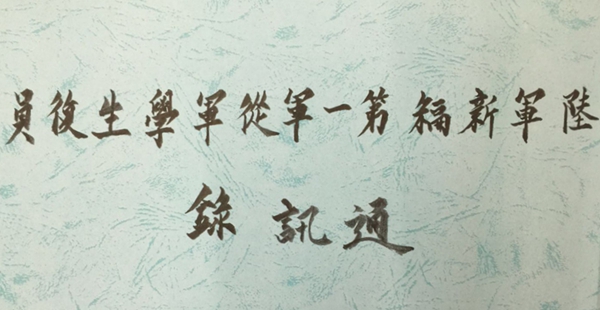 陸軍新编第一軍從軍學生復員
通訊錄